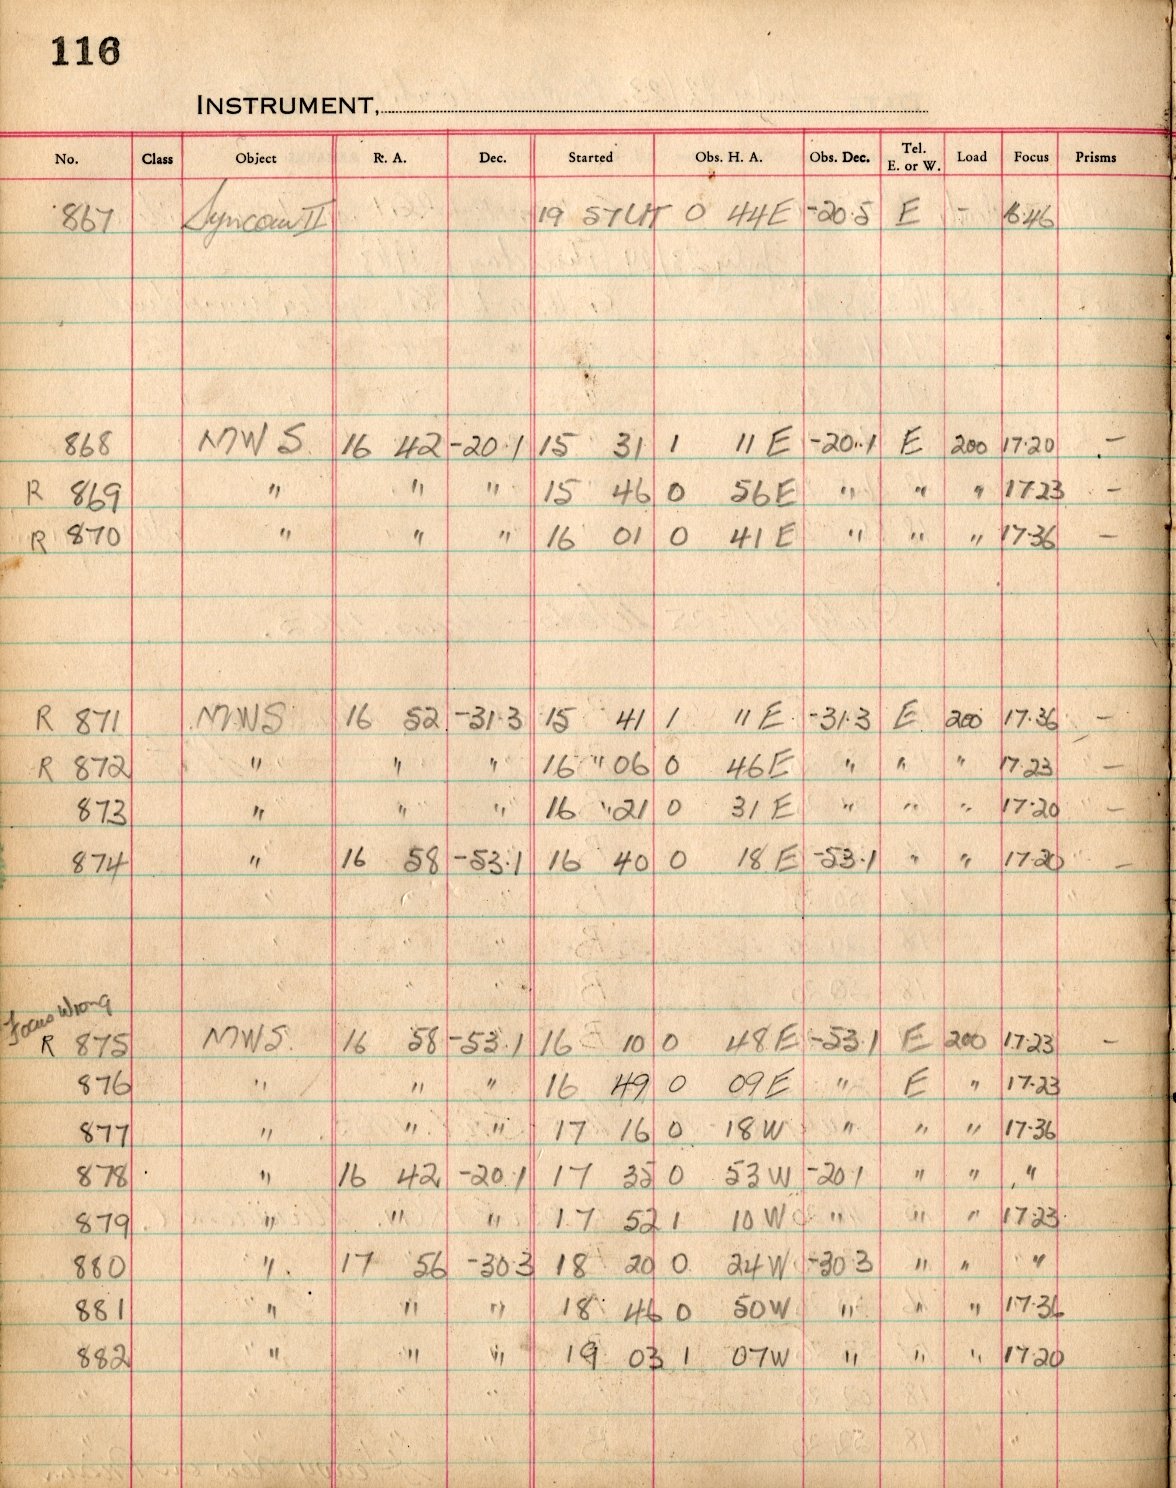 116
INSTRUMENT,
No. Class Object R. A. Dec. Started Obs. H. A. Obs. Dec. Tel. E. or W. Load Focus Prisms
867 Syncom II 19 57 UT 0 44E -20.5 E - 1646
868 MWS 16 42 -20.1 15 31 1 11 E -20.1 E 200 17.20 -
R 869 " " " 15 46 0 56E " " " 17.23 -
R 870 " " " 16 01 0 41 E " " " 17.36 -
R 871 MWS 16 52 -31.3 15 41 1 11 E -31.3 E 200 17.36 -
R 872 " " " 16 " 06 0 46E " " " 17.23 -
873 " " " 16 " 21 0 31 E " " " 17.20 -
874 " 16 58 -53.1 16 40 0 18 E -53.1 " " 17.20 -
Focus Wrong
R 875 MWS. 16 58 -53.1 16 10 0 48E -53.1 E 200 17.23 -
876 " " " 16 49 0 09E " E " 17.23
877 " " " 17 16 0 18W " " " 17.36
878 " 16 42 -20.1 17 35 0 53W -20.1 " " "
879 " " " 17 52 1 10W " " " 17.23
880 " 17 56 -30.3 18 20 0 24W -30.3 " " "
881 " " " 18 46 0 50W " " " 17.36
882 " " " 19 03 1 07W " " " 17.20